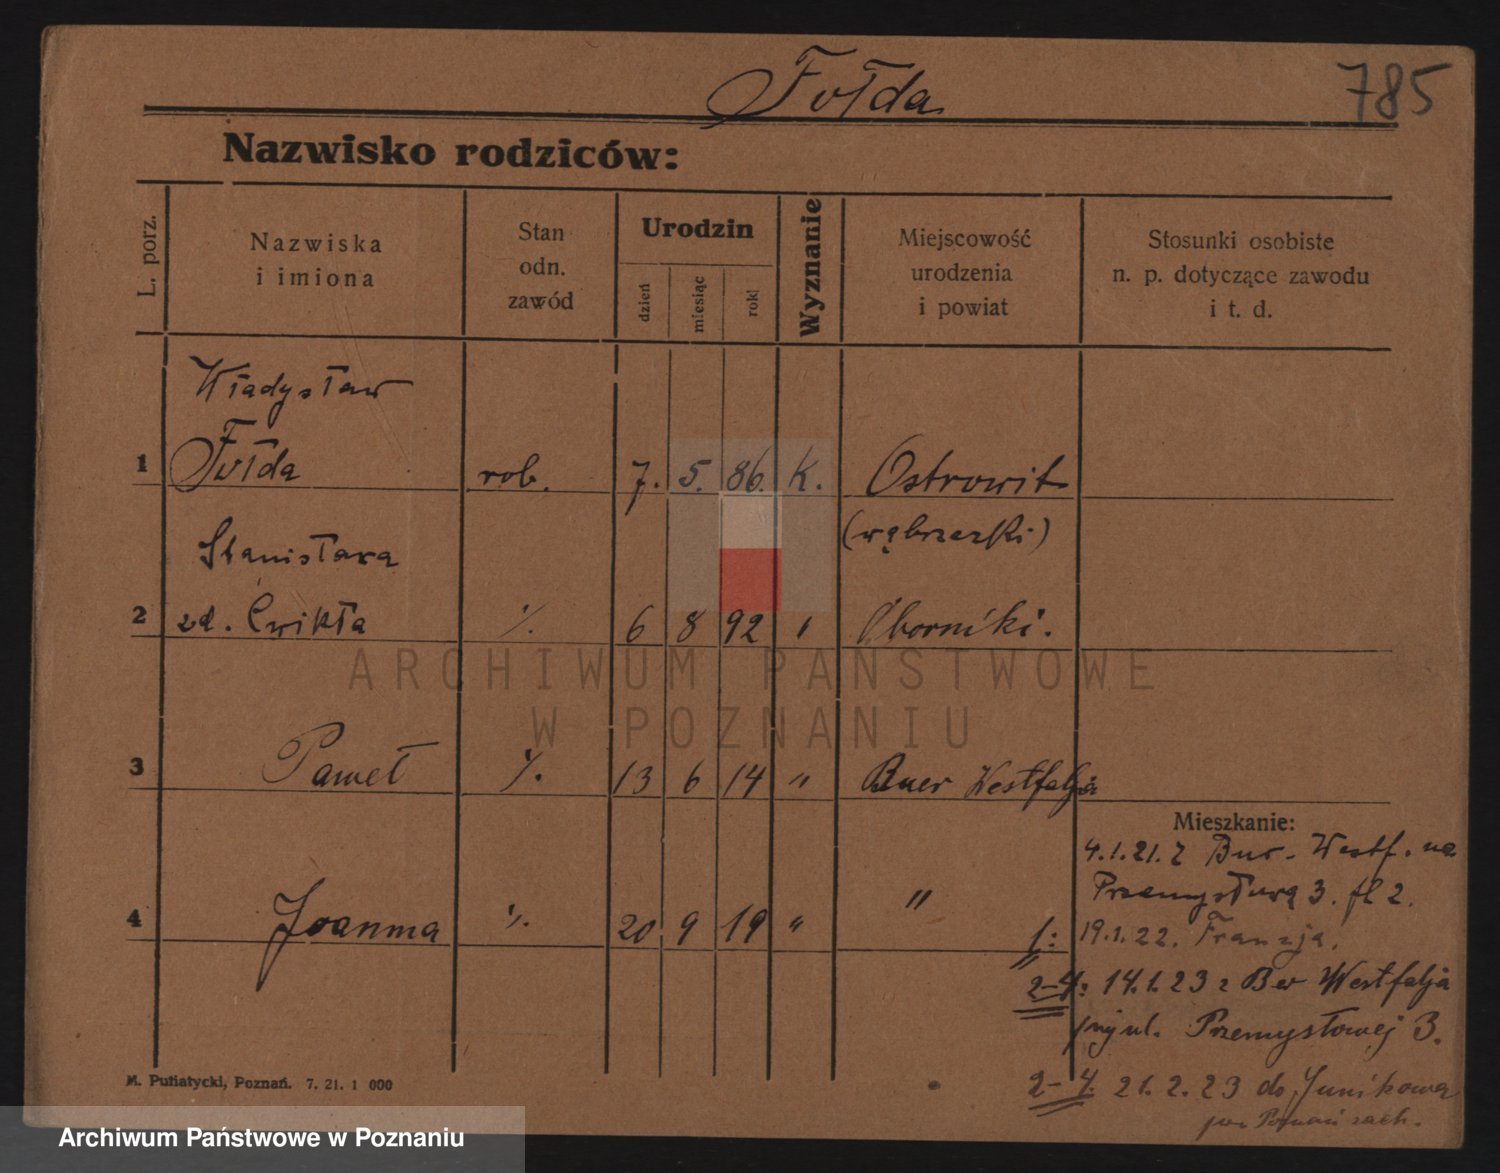 Fołda
785
Nazwisko rodziców:
L. porz.
Nazwiska
i imiona
Stan
odn.
zawód
Urodzin
dzień
miesiąc
rok
Wyznanie
Miejscowość
urodzenia
i powiat
Stosunki osobiste
n. p. dotyczące zawodu
i t. d.
Władysław
1 Fołda rob. 7. 5. 86. K. Ostrowit
(wąbrzeski)
Stanisława
2 zd. Ćwikła ./. 6 8 92 " Oborniki.
3 Paweł ./. 13 6 14 " Buer Westfalja
Mieszkanie:
4.1.21. z Westf. na
Przemysłową 3.
4 Joanna ./. 20 9 19 " "
1: 19.1.22. Francja.
2-4: 14.1.23 z Westfalja
ul. Przemysłowej 3.
2-4. 21.2.23 do Junikowa
pow. Poznań zach.
M. Putiatycki, Poznań. 7. 21. 1 000
ARCHIWUM PAŃSTWOWE
W POZNANIU
Archiwum Państwowe w Poznaniu